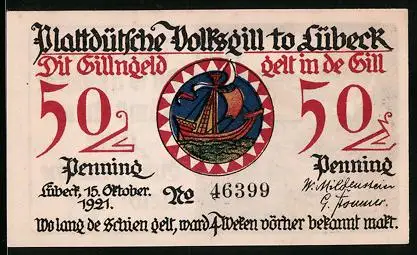 Plattdütsche Volksgill to Lübeck
Dit Gillngeld gelt in de Gill
50 50
Penning Penning
Lübeck, 15. Oktober. 1921.
No 46399
Wo lang de Schien gelt, ward 4 Weken vörher bekannt makt.